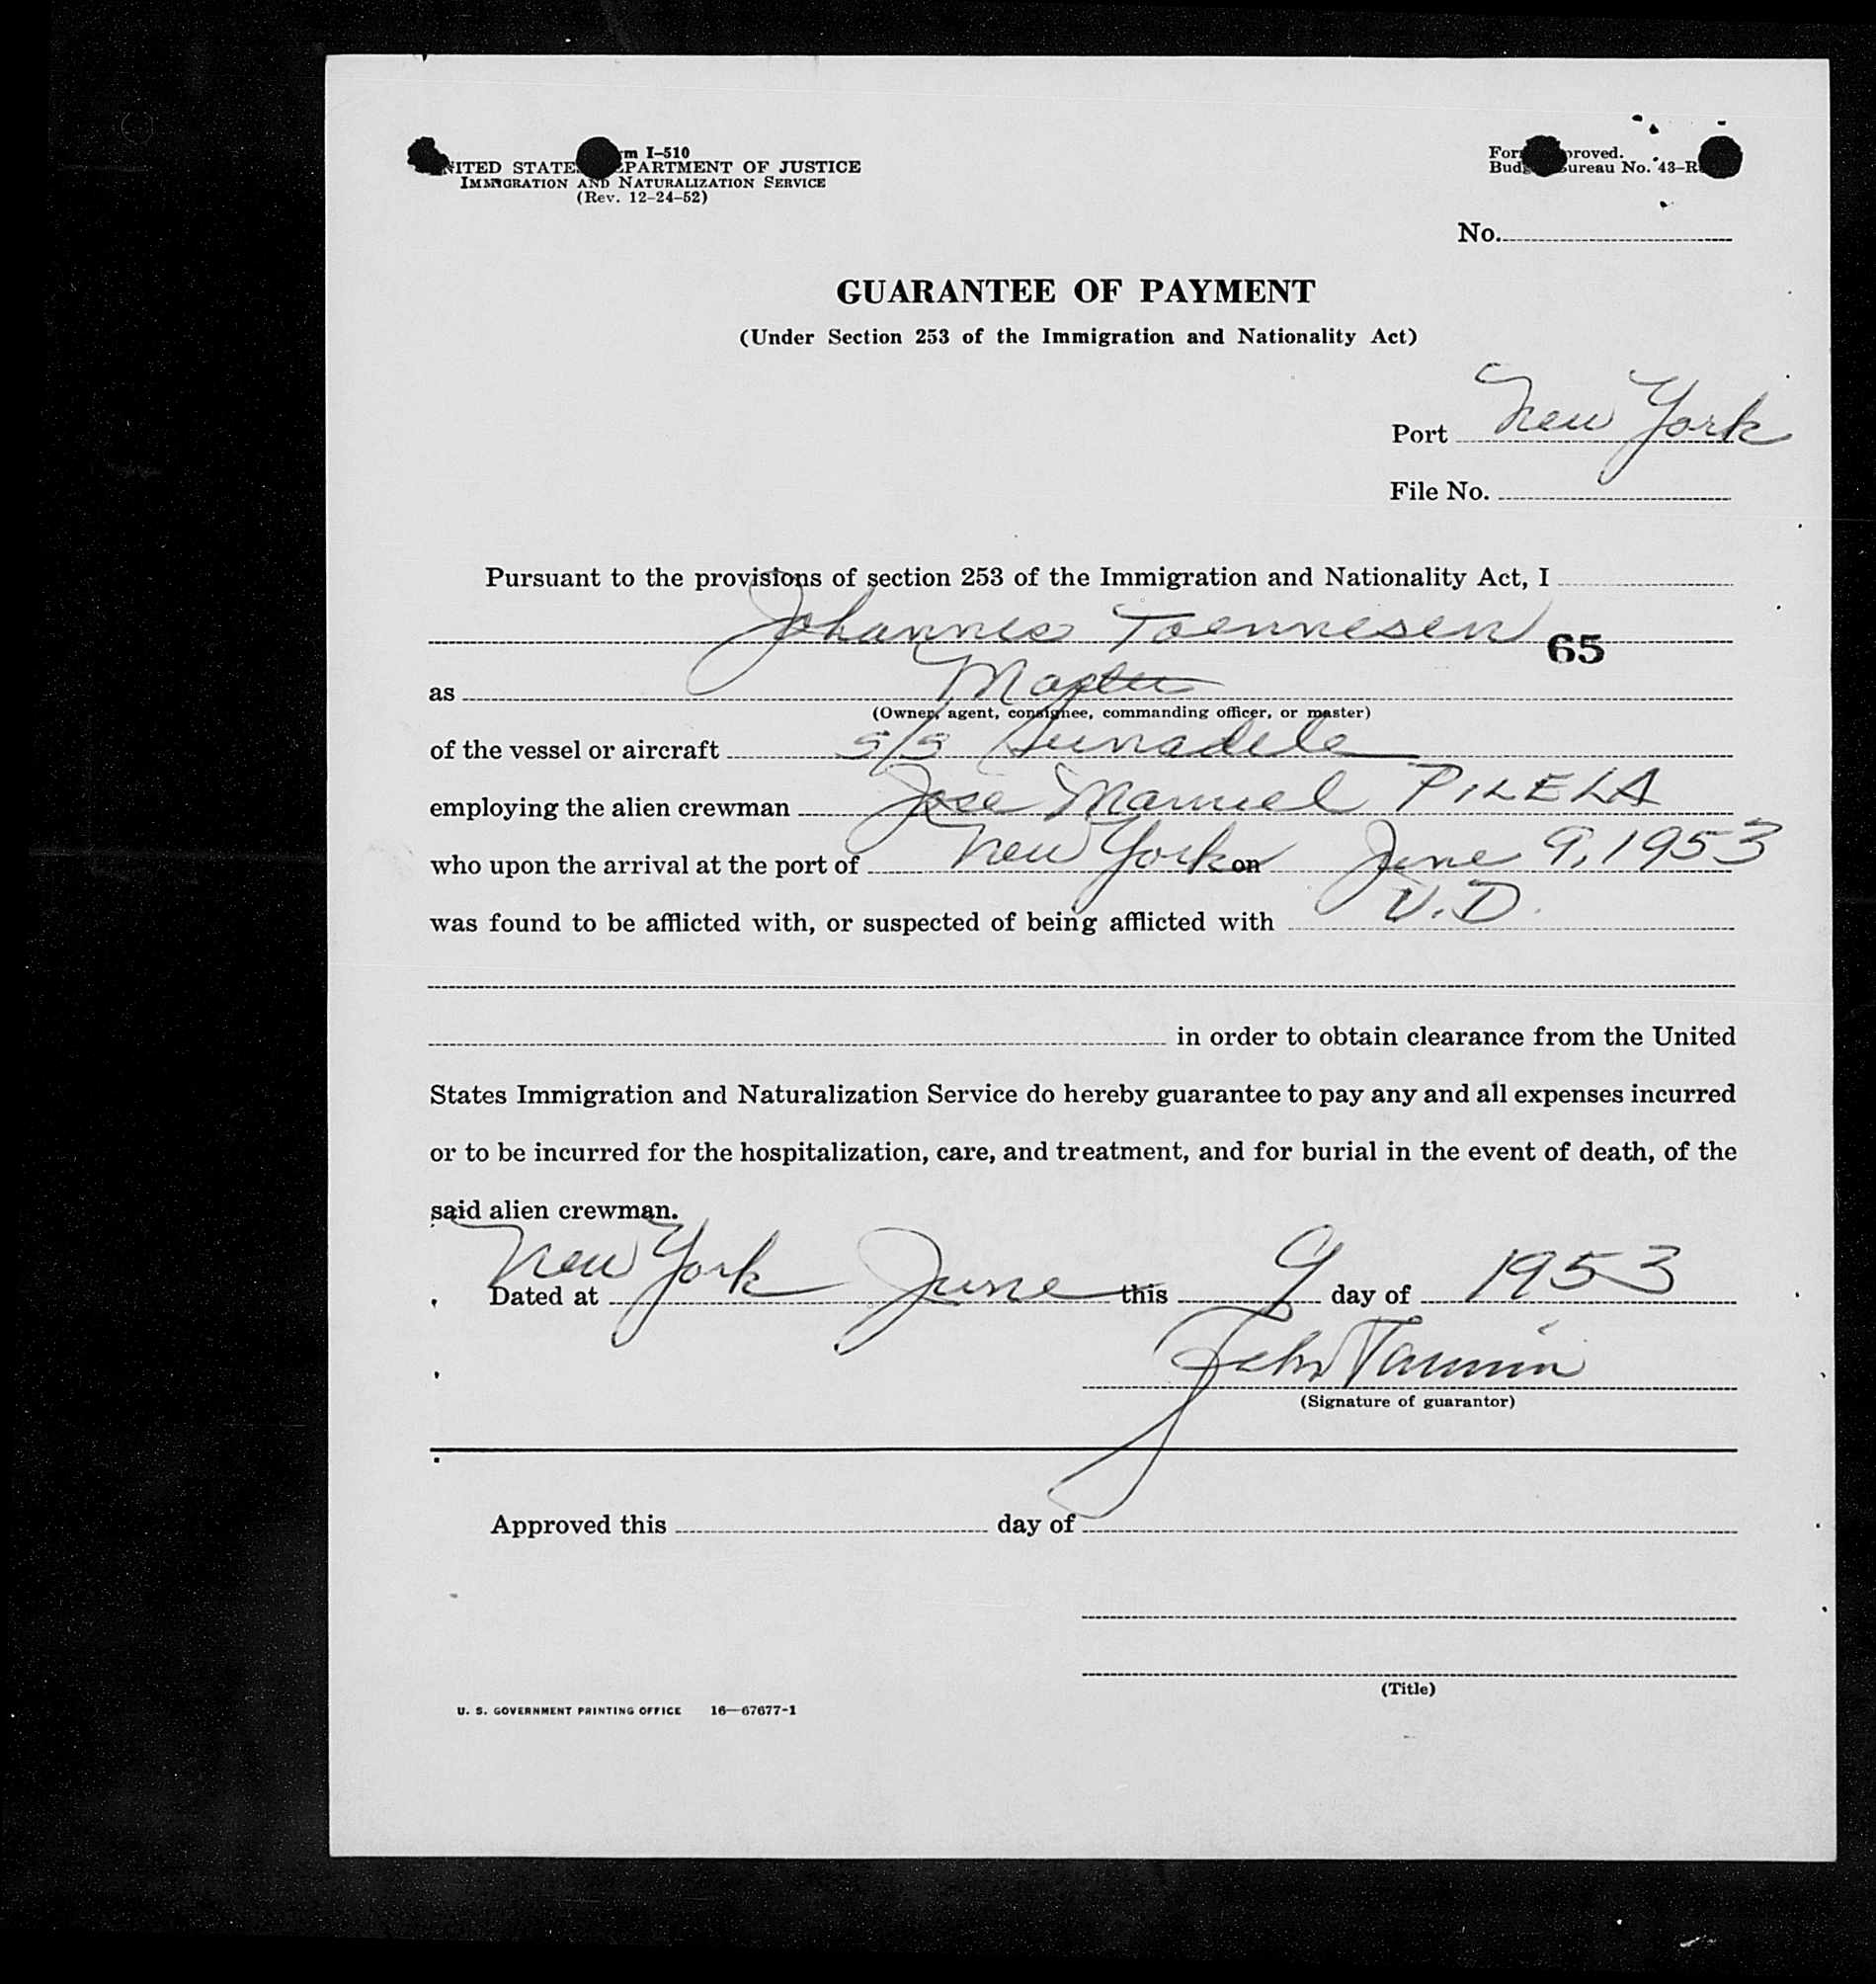 m I-510
NITED STATES PARTMENT OF JUSTICE
IMMIGRATION AND NATURALIZATION SERVICE
(Rev. 12-24-52)
For proved.
Budg ureau No. 43-R
No.
GUARANTEE OF PAYMENT
(Under Section 253 of the Immigration and Nationality Act)
Port New York
File No.
Pursuant to the provisions of section 253 of the Immigration and Nationality Act, I
Johannes Toennesen
65
as Master
(Owner, agent, consignee, commanding officer, or master)
of the vessel or aircraft s/s Sunadele
employing the alien crewman Jose Manuel PILELA
who upon the arrival at the port of New York on June 9, 1953
was found to be afflicted with, or suspected of being afflicted with V.D.
in order to obtain clearance from the United
States Immigration and Naturalization Service do hereby guarantee to pay any and all expenses incurred
or to be incurred for the hospitalization, care, and treatment, and for burial in the event of death, of the
said alien crewman.
Dated at New York June this 9 day of 1953
(Signature of guarantor)
Approved this day of
(Title)
U. S. GOVERNMENT PRINTING OFFICE 16—67677-1